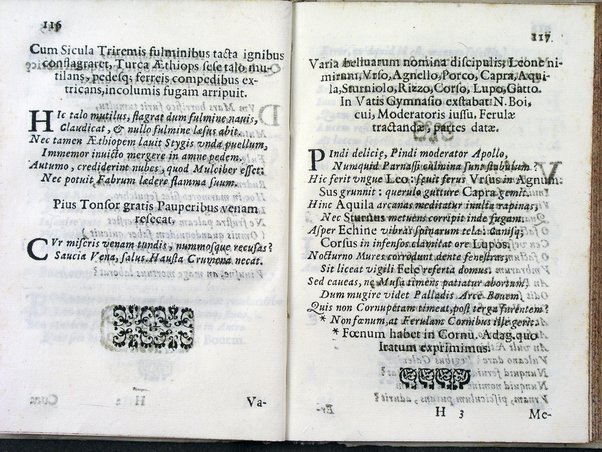 116
Cum Sicula Triremis fulminibus tacta ignibus
conflagraret, Turca Æthiops sese talo mu-
tilans, pedesq; ferreis compedibus ex-
tricans, incolumis fugam arripuit.
HIc talo mutilus, flagrat dum fulmine navis,
Claudicat, & nullo fulmine læsus abit.
Nec tamen Æthiopem lauit Stygis vnda puellum,
Immemor inuicto mergere in amne pedem.
Autumo, crediderint nubes, quod Mulciber esset:
Nec potuit Fabrum lædere flamma suum.
Pius Tonsor gratis Pauperibus venam
resecat.
CVr miseris venam tundis, nummosque recusas?
Saucia Vena, salus. Hausta Crumena necat.
H 2
Va-
117
Varia belluarum nomina discipulis, Leone ni-
mirum, Vrso, Agnello, Porco, Capra, Aqui-
la, Sturniolo, Rizzo, Corso, Lupo, Gatto.
In Vatis Gymnasio exstabat N. Boi,
cui, Moderatoris iussu, Ferulæ
tractandæ, partes datæ.
PIndi delicię, Pindi moderator Apollo,
Nunquid Parnassi culmina sunt stabulum?
Hic ferit vngue Leo: sæuit ferus Vrsus in Agnum.
Sus grunnit: querulo gutture Capra gemit.
Hinc Aquila arcanas meditatur inulta rapinas,
Nec Sturnus metuens corripit inde fugam.
Asper Echine vibras spinarum tela: Canisq;
Corsus in infensos clamitat ore Lupos.
Nocturno Mures corrodunt dente fenestras,
Sit liceat vigili Fele referta domus.
Sed caueas, ne Musa timens patiatur abortum,
Dum mugire videt Palladis Arce Bouem.
Quis non Cornupetam timeat, post terga furentem?
* Non fœnum, at Ferulam Cornibus ille gerit.
* Fœnum habet in Cornu. Adag. quo
Iratum exprimimus.
H 3
Me-